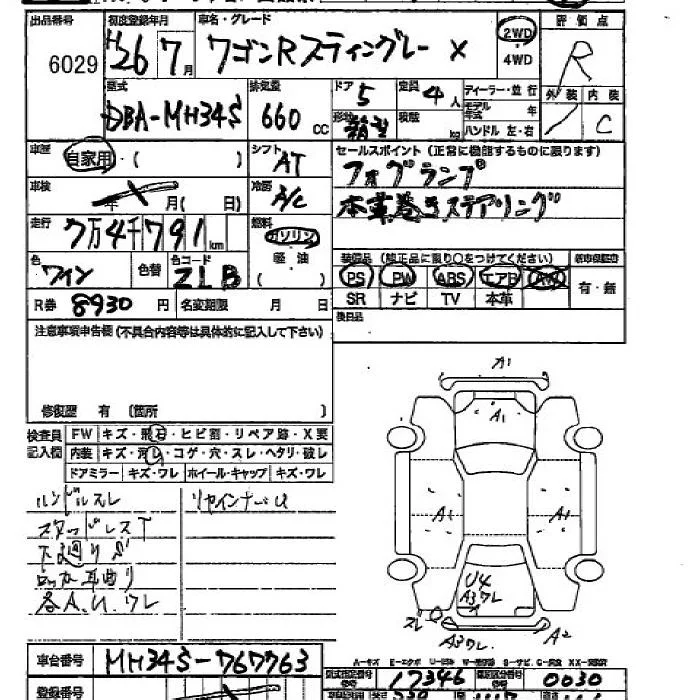 出品番号 初度登録年月 車名・グレード 評価点
6029 H26 7月 ワゴンRスティングレー X 2WD 4WD R
型式 排気量 ドア 定員 ディーラー・並行 外装 内装
DBA-MH34S 660 cc 5 4人 モデル年式 年 C
形状 箱型 積載 kg ハンドル 左・右
車歴 自家用・( ) シフト AT セールスポイント (正常に機能するものに限ります)
フォグランプ
車検 年 月( 日) 冷房 A/C 本革巻きステアリング
走行 7万4千791km 燃料 ガソリン 軽油 ( )
色 ワイン 色替 色コード ZLB 装備品 (純正品に限り○をつけてください) 新車保証書
PS PW ABS エアB AW 有・無
SR ナビ TV 本革
R券 8930円 名変期限 月 日 後日品
注意事項申告欄(不具合内容等は具体的に記入して下さい)
修復歴 有 (箇所 )
検査員記入欄 FW キズ・飛石・ヒビ割・リペア跡・X要
内装 キズ・汚レ・コゲ・穴・スレ・ヘタリ・破レ
ドアミラー キズ・ワレ ホイール・キャップ キズ・ワレ
ハンドルスレ
スタッドレスT
下廻りサビ
各A.U.ワレ
A1
A1
A1 A1
U4
A3ワレ
スレ A3ワレ A2
車台番号 MH34S-767763
A-キズ E-エクボ U-凹み
型式指定番号 17346 類別区分番号 0030
登録番号